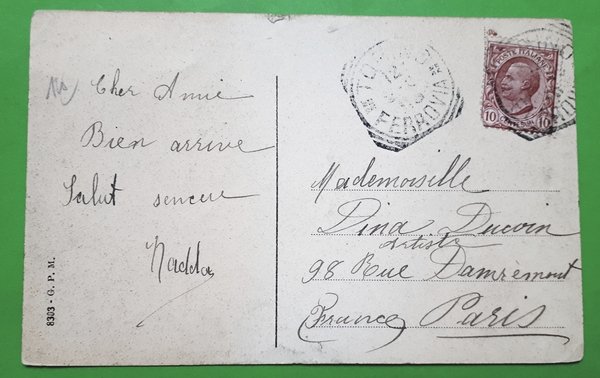 Cher Amie
Bien arrive
Salut sencere
Nadda
8303 - G. P. M.
TORINO
FERROVIA
POSTE ITALIANE
10 CENTESIMI 10
Mademoiselle
Dina Ducoin
Artiste
98 Rue Damrèmont
France Paris